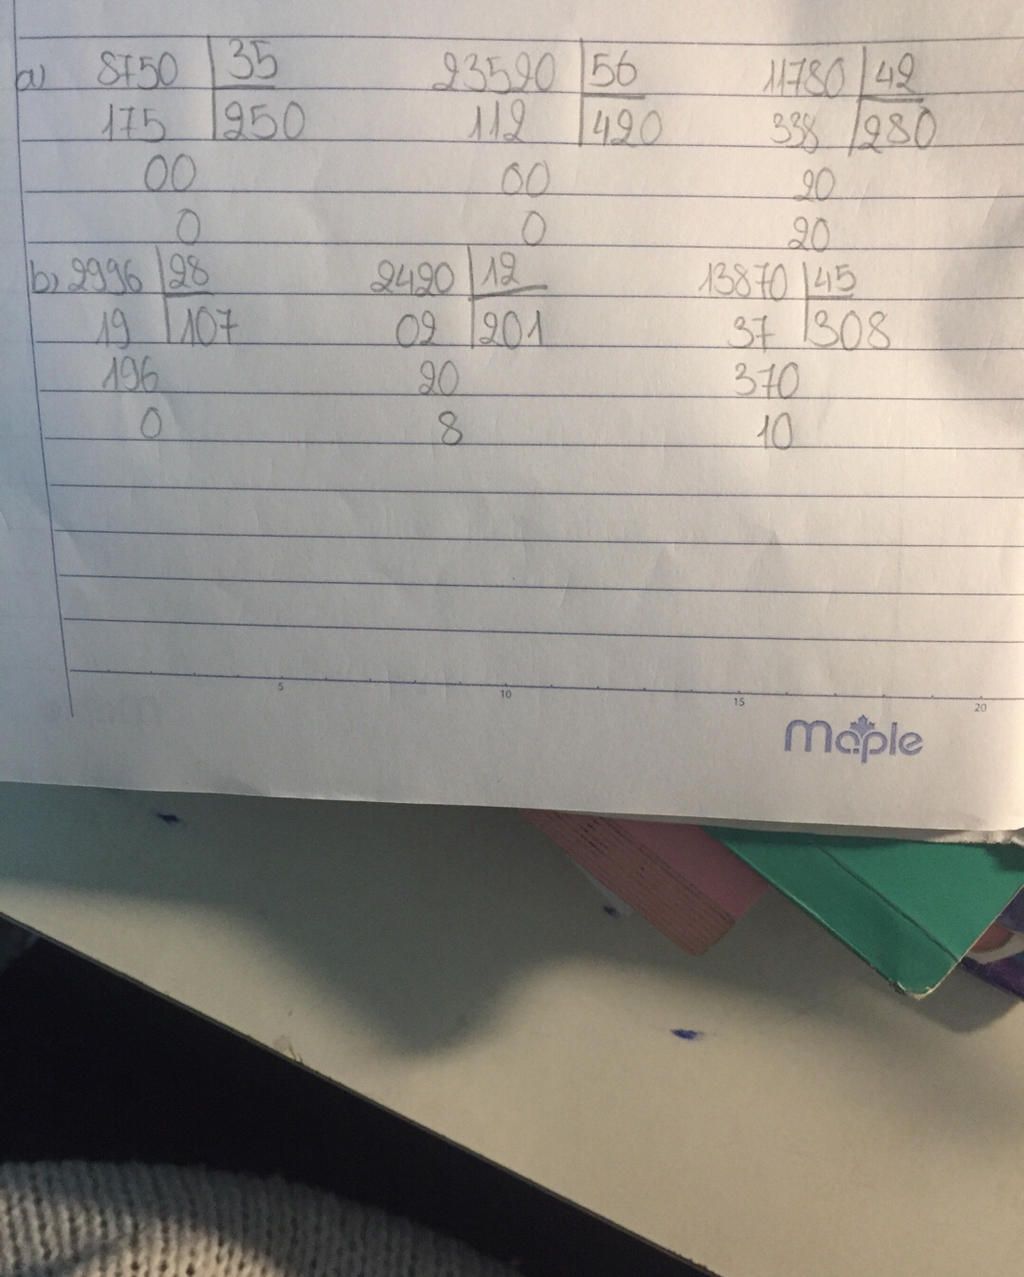 a) 8750 35 23520 56 11780 42
175 250 112 420 338 280
00 00 20
0 0 20
b) 2996 28 2420 12 13870 45
19 107 02 201 37 308
196 20 370
0 8 10
5 10 15 20
Maple